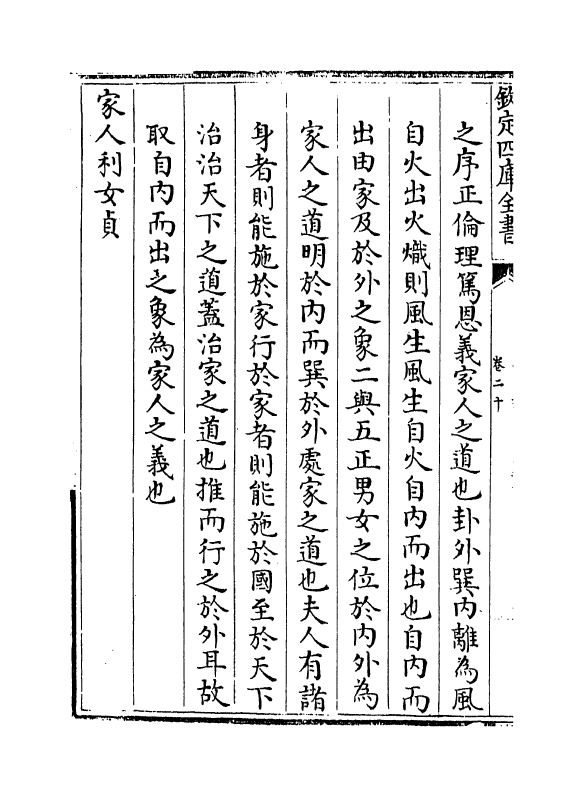 欽定四庫全書
卷二十
之序正倫理篤恩義家人之道也卦外巽内離為風
自火出火熾則風生風生自火自内而出也自内而
出由家及於外之象二與五正男女之位於内外為
家人之道明於内而巽於外處家之道也夫人有諸
身者則能施於家行於家者則能施於國至於天下
治治天下之道蓋治家之道也推而行之於外耳故
取自内而出之象為家人之義也
家人利女貞